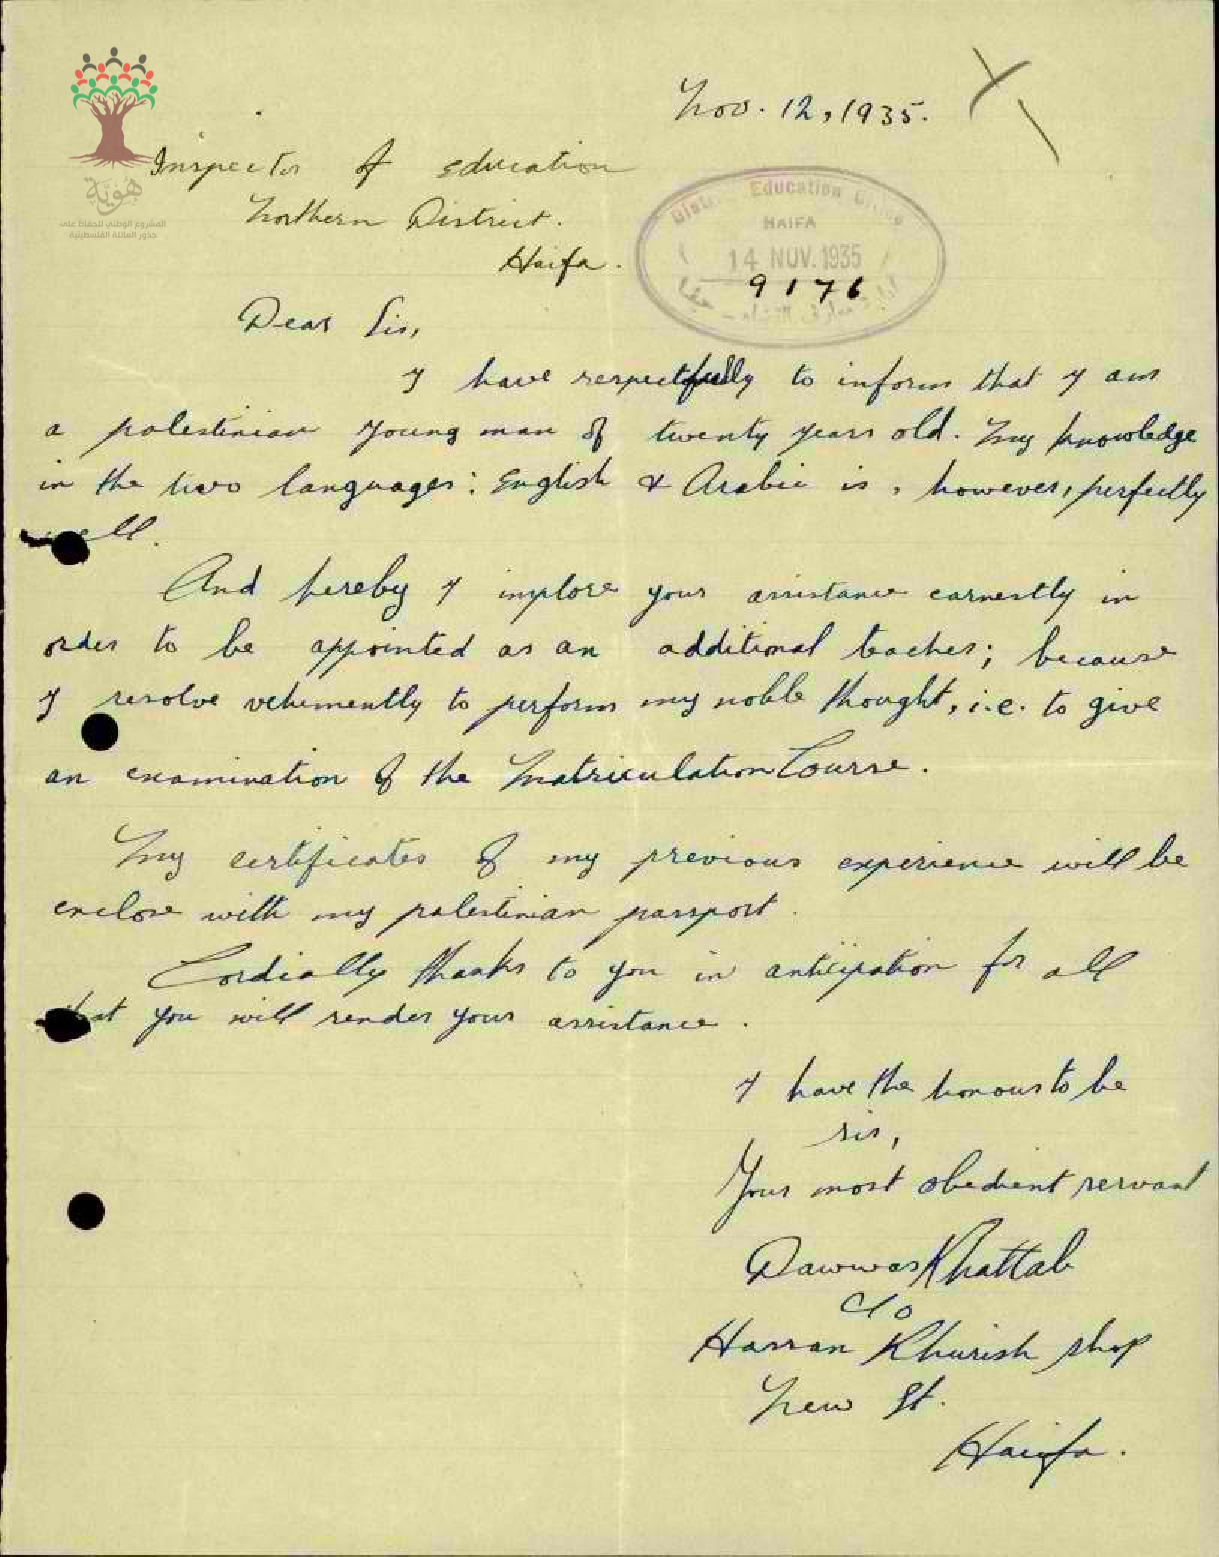 Nov. 12, 1935.
Inspector of education
Northern District.
Haifa.
District Education Office
HAIFA
14 NOV. 1935
9176
هوية
المشروع الوطني للحفاظ على
جذور العائلة الفلسطينية
Dear Sir,
I have respectfully to inform that I am
a palestinian young man of twenty years old. My knowledge
in the two languages: English & Arabic is, however, perfectly
well.
And hereby I implore your assistance earnestly in
order to be appointed as an additional teacher; because
I resolve vehemently to perform my noble thought, i.e. to give
an examination of the Matriculation Course.
My certificates of my previous experience will be
enclose with my palestinian passport.
Cordially thanks to you in anticipation for all
that you will render your assistance.
I have the honour to be
sir,
Your most obedient servant
Dawwas Khattab
c/o
Hassan Khurish shop
New St.
Haifa.